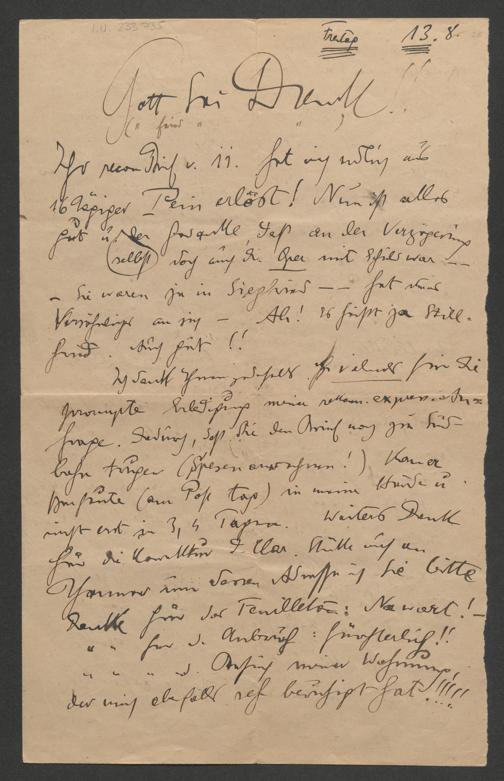 I.N. 233735
Freitag 13. 8.
Gott sei Dank!!
Ihr recom Brief v. 11. hat mich endlich aus
16 tägiger Pein erlöst! Nun ist alles
gut u. der Gedanke, daß an der Verzögerung
selbst doch auch die Oper mit Schuld war —
– Sie waren ja in Siegfried — hat etwas
Versöhnliches an sich – Ah! Es heißt ja Still-
. Auch gut!!
Ich danke Ihnen jedenfalls für die
prompte Erledigung meiner rekom.
frage. Dadurch, daß Sie den Brief noch zur Süd-
bahn trugen (Spesen anrechnen!) kam er
heute (am Post tag) in meine Hände u.
nicht erst in 3, 4 Tagen. Weiters Dank
für die Korrektur
um dessen Adresse ich Sie bitte
Danke für das Feuilleton: Na wart! –
" " für d. : fürchterlich!!
" " " d. Ansicht meiner Wohnung,
der mich ebenfalls sehr beruhigt hat!!!!!